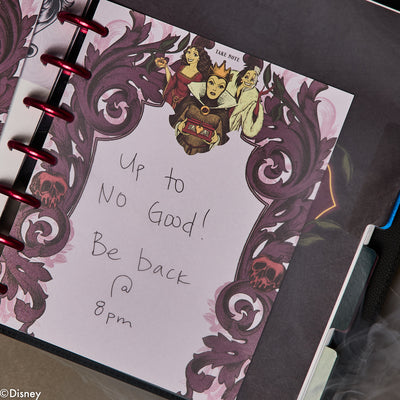 TAKE NOTE
Up to
No Good!
Be back
@
8pm
©Disney